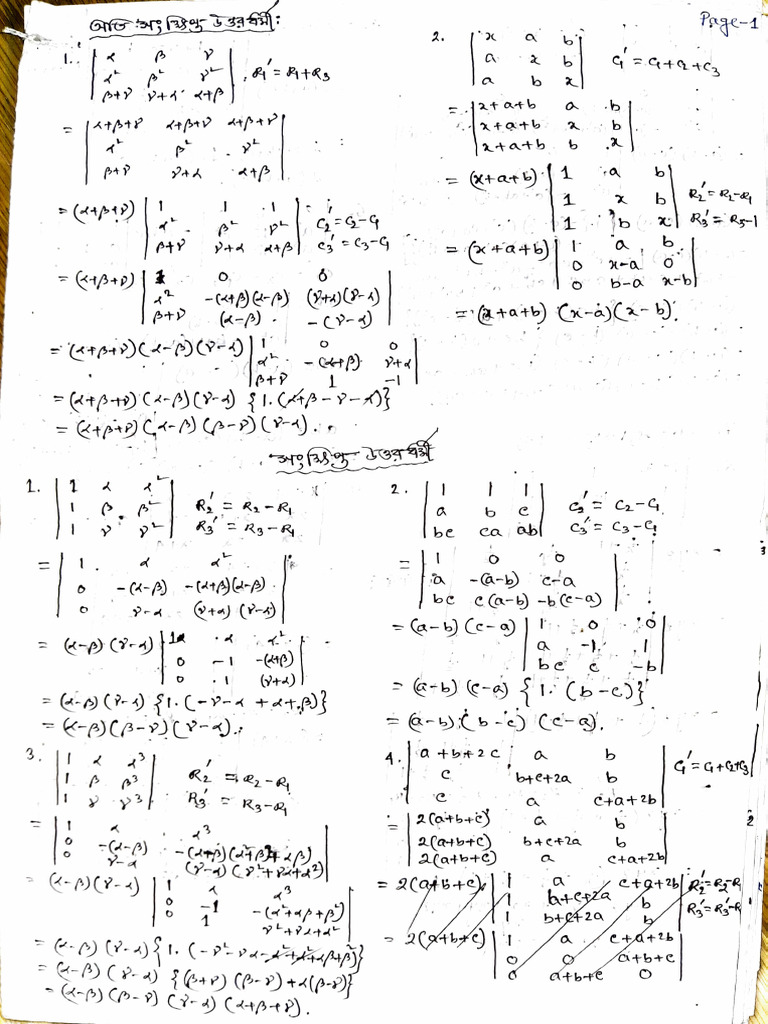 অতি সংক্ষিপ্ত উত্তরধর্মী:
Page-1
1. | α β γ |
| α² β² γ² | , R₁' = R₁+R₃
| β+γ γ+α α+β |
= | α+β+γ α+β+γ α+β+γ |
| α² β² γ² |
| β+γ γ+α α+β |
= (α+β+γ) | 1 1 1 |
| α² β² γ² | C₂' = C₂-C₁
| β+γ γ+α α+β | C₃' = C₃-C₁
= (α+β+γ) | 1 0 0 |
| α² -(α+β)(α-β) (γ+α)(γ-α) |
| β+γ (α-β) -(γ-α) |
= (α+β+γ)(α-β)(γ-α) | 1 0 0 |
| α² -(α+β) γ+α |
| β+γ 1 -1 |
= (α+β+γ)(α-β)(γ-α) {1.(α+β-γ-α)}
= (α+β+γ)(α-β)(β-γ)(γ-α).
2. | x a b |
| a x b | C₁' = C₁+C₂+C₃
| a b x |
= | x+a+b a b |
| x+a+b x b |
| x+a+b b x |
= (x+a+b) | 1 a b |
| 1 x b | R₂' = R₂-R₁
| 1 b x | R₃' = R₃-1
= (x+a+b) | 1 a b |
| 0 x-a 0 |
| 0 b-a x-b |
= (x+a+b) (x-a)(x-b).
সংক্ষিপ্ত উত্তরধর্মী
1. | 1 α α² |
| 1 β β² | R₂' = R₂-R₁
| 1 γ γ² | R₃' = R₃-R₁
= | 1 α α² |
| 0 -(α-β) -(α+β)(α-β) |
| 0 γ-α (γ+α)(γ-α) |
= (α-β)(γ-α) | 1 α α² |
| 0 -1 -(α+β) |
| 0 1 (γ+α) |
= (α-β)(γ-α) {1.(-γ-α+α+β)}
= (α-β)(β-γ)(γ-α).
2. | 1 1 1 |
| a b c | C₂' = C₂-C₁
| bc ca ab | C₃' = C₃-C₁
= | 1 0 0 |
| a -(a-b) c-a |
| bc c(a-b) -b(c-a) |
= (a-b)(c-a) | 1 0 0 |
| a -1 1 |
| bc c -b |
= (a-b)(c-a) {1.(b-c)}
= (a-b)(b-c)(c-a).
3. | 1 α α³ |
| 1 β β³ | R₂' = R₂-R₁
| 1 γ γ³ | R₃' = R₃-R₁
= | 1 α α³ |
| 0 -(α-β) -(α-β)(α²+β²+αβ) |
| 0 γ-α (γ-α)(γ²+γα+α²) |
= (α-β)(γ-α) | 1 α α³ |
| 0 -1 -(α²+αβ+β²) |
| 0 1 γ²+γα+α² |
= (α-β)(γ-α){1.(-γ²-γα-α²+α²+αβ+β²)}
= (α-β)(γ-α) {(β+γ)(β-γ)+α(β-γ)}
= (α-β)(β-γ)(γ-α)(α+β+γ).
4. | a+b+2c a b |
| c b+c+2a b | C₁' = C₁+C₂+C₃
| c a c+a+2b |
= | 2(a+b+c) a b |
| 2(a+b+c) b+c+2a b |
| 2(a+b+c) a c+a+2b |
= 2(a+b+c) | 1 a c+a+2b | R₂' = R₂-R
| 1 b+c+2a b | R₃' = R₃-R
| 1 b+c+2a b |
= 2(a+b+c) | 1 a c+a+2b |
| 0 0 a+b+c |
| 0 a+b+c 0 |